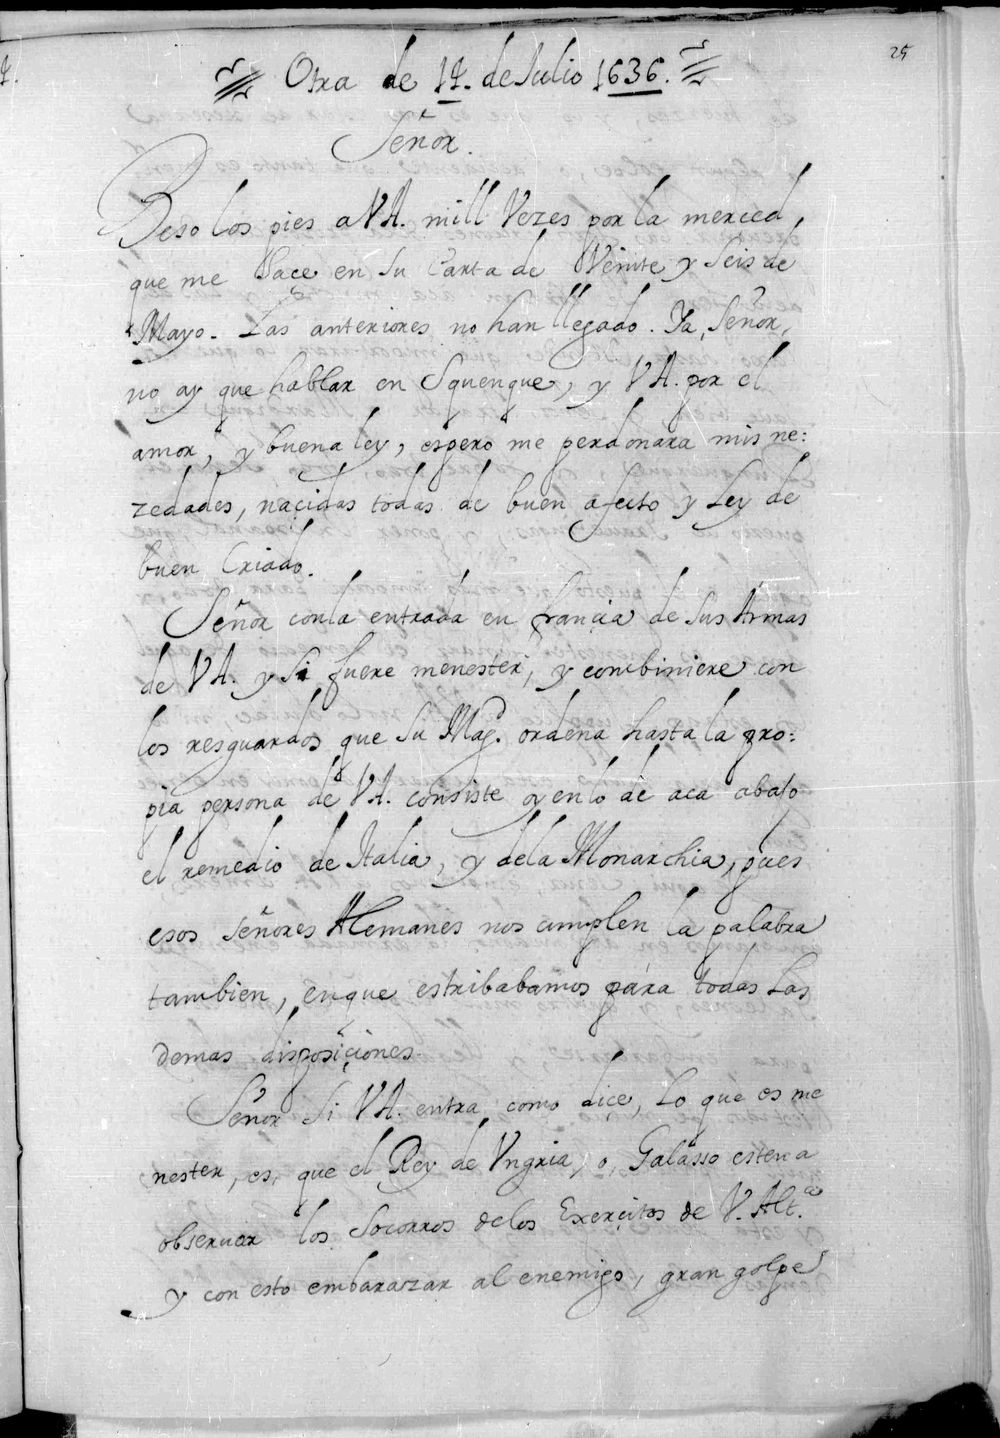 25
Otra de 14. de Julio 1636.
Señor.
Beso los pies a VA. mill Vezes por la merced,
que me hace en su Carta de Veinte y seis de
Mayo. Las anteriores no han llegado. Ya, Señor,
no ay que hablar en Squenque, y VA. por el
amor, y buena ley, espero me perdonara mis ne:
zedades, nacidas todas de buen afecto y Ley de
buen Criado.
Señor conla entrada en francia de sus Armas
de VA. y si fuere menester, y combiniere con
los resguardos que su Magd. ordena hasta la pro:
pia persona de VA. consiste oy en lo de aca abajo
el remedio de Italia, y dela Monarchia, pues
esos señores Alemanes nos cumplen la palabra
tambien, enque estribabamos para todas las
demas disposiçiones.
Señor Si VA. entra como diçe, Lo que es me
nester, es, que el Rey de Vngria, o, Galasso esten a
obseruar los Socorros delos Exerçitos de V. Alt.ª
y con esto embarazar al enemigo, gran golpe